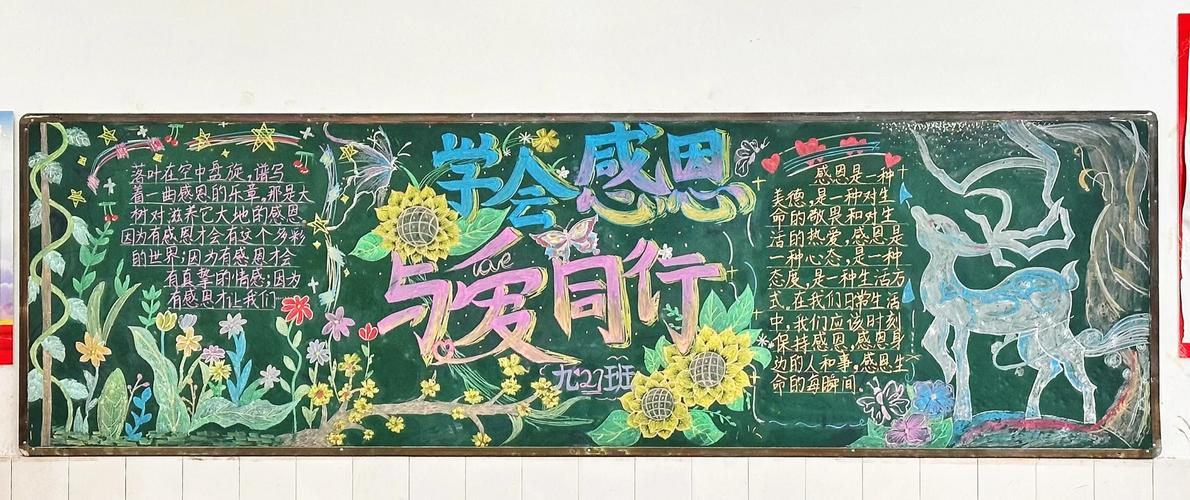 落叶在空中盘旋,谱写
着一曲感恩的乐章,那是大
树对滋养它大地的感恩,
因为有感恩才会有这个多彩
的世界;因为有感恩才会
有真挚的情感;因为
有感恩才让我们
学会感恩
与爱同行
love
九.27班
感恩是一种
美德,是一种对生
命的敬畏和对生
活的热爱,感恩是
一种心态,是一种
态度,是一种生活方
式,在我们日常生活
中,我们应该时刻
保持感恩,感恩身
边的人和事,感恩生
命的每瞬间.